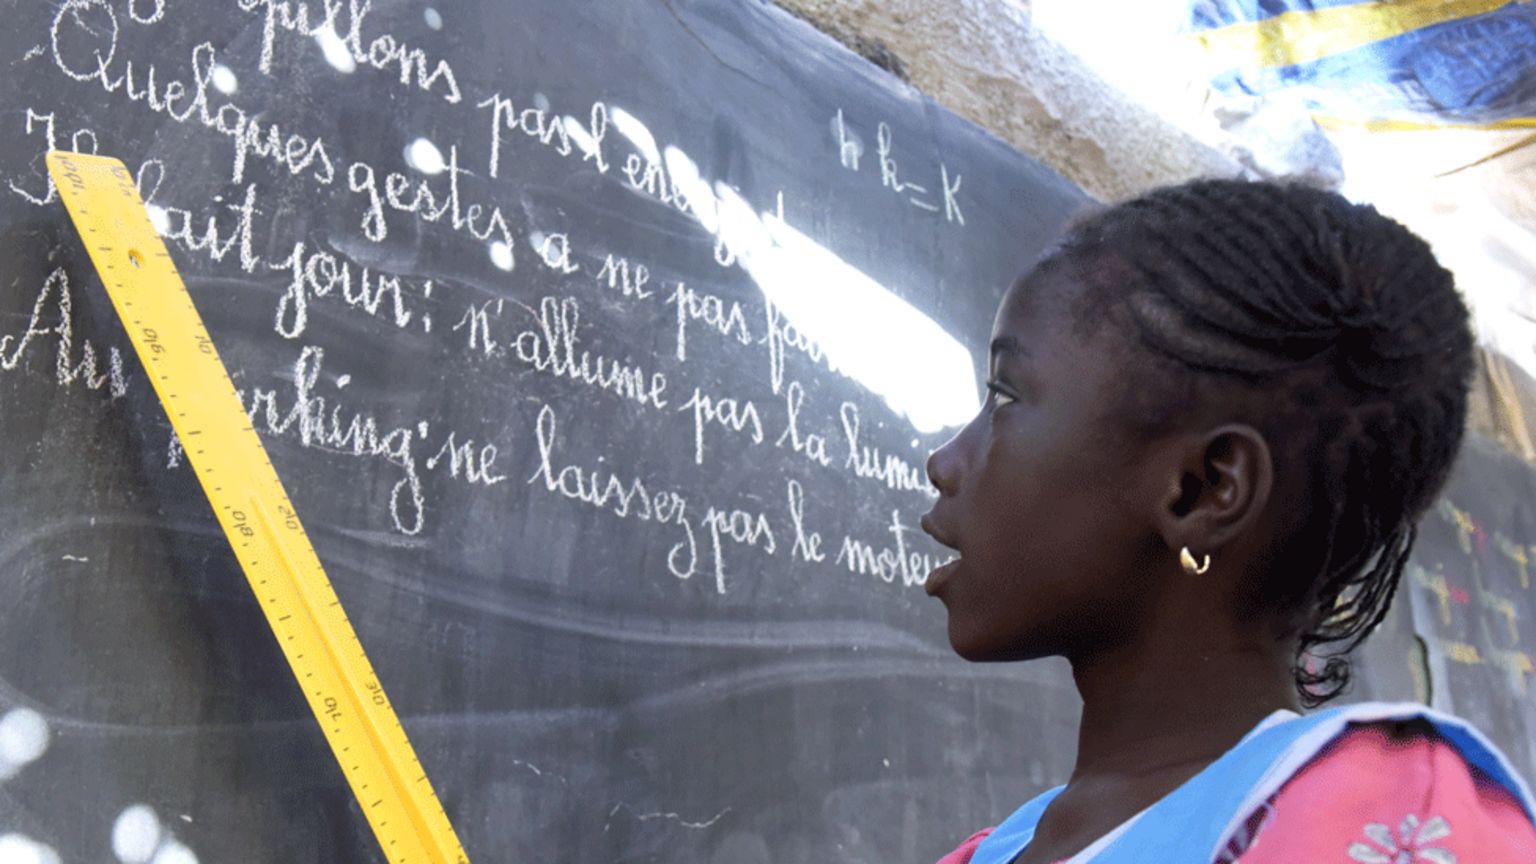 gaspillons pas l'énergie
Quelques gestes à ne pas
Il fait jour: n'allume pas la lumi
Au parking: ne laissez pas le moteu
h k = K
100 90 80 70
10 20 30